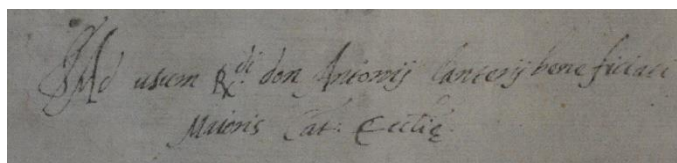 Ad usum Rdi don Antonij Canterij beneficiati
Maioris Cat: Ecclie